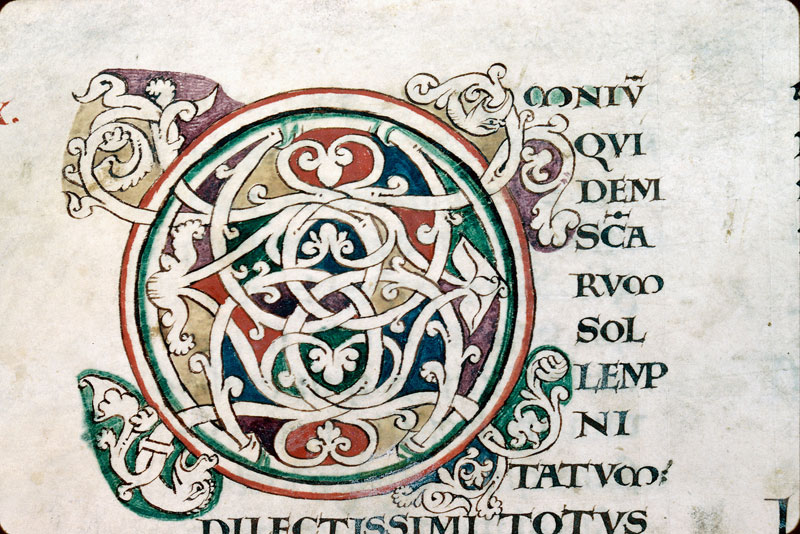 OMNIŪ
QUI
DEM
SC̄A
RUM
SOL
LEMP
NI
TATUM;
DILECTISSIMI TOTUS